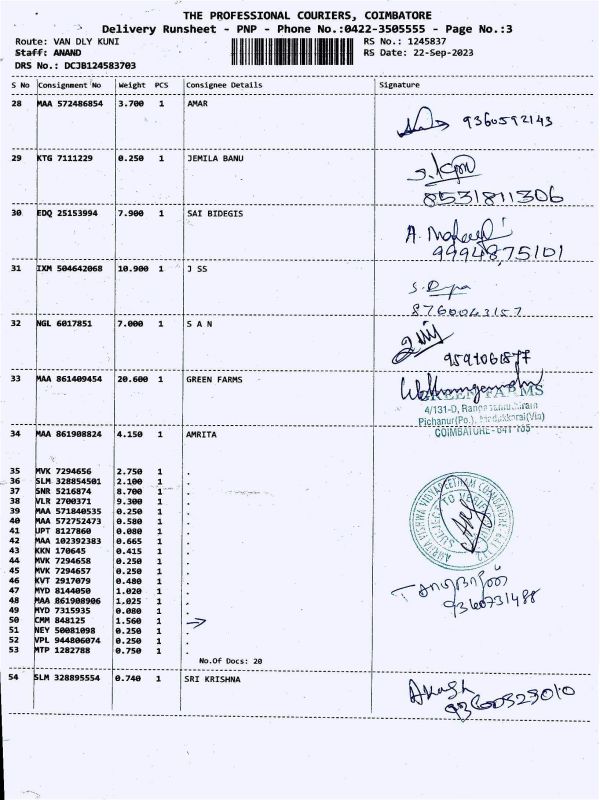 THE PROFESSIONAL COURIERS, COIMBATORE
Delivery Runsheet - PNP - Phone No.:0422-3505555 - Page No.:3
Route: VAN DLY KUNI RS No.: 1245837
Staff: ANAND RS Date: 22-Sep-2023
DRS No.: DCJB124583703
S No Consignment No Weight PCS Consignee Details Signature
28 MAA 572486854 3.700 1 AMAR
9360592143
29 KTG 7111229 0.250 1 JEMILA BANU
8531811306
30 EDQ 25153994 7.900 1 SAI BIDEGIS
9994875101
31 IXM 504642068 10.900 1 J SS
8760043157
32 NGL 6017851 7.000 1 S A N
9591061877
33 MAA 861409454 20.600 1 GREEN FARMS
GREEN FARMS
4/131-D,
Pichanur(Po.), (Via)
COIMBATORE - 641 105
34 MAA 861908824 4.150 1 AMRITA
35 MVK 7294656 2.750 1 .
36 SLM 328854501 2.100 1 .
37 SNR 5216874 8.700 1 .
38 VLR 2700371 9.300 1 .
39 MAA 571840535 0.250 1 .
40 MAA 572752473 0.580 1 .
41 UPT 8127860 0.080 1 .
42 MAA 102392383 0.665 1 .
43 KKN 170645 0.415 1 .
44 MVK 7294658 0.250 1 .
45 MVK 7294657 0.250 1 .
46 KVT 2917079 0.480 1 .
47 MYD 8144050 1.020 1 .
48 MAA 861908906 1.025 1 .
49 MYD 7315935 0.080 1 .
50 CMM 848125 1.560 1 .
51 NEY 50081098 0.250 1 .
52 VPL 944806074 0.250 1 .
53 MTP 1282788 0.750 1 .
AMRITA VISHWA VIDYAPEETHAM COIMBATORE - 641 112
SUBJECT TO VERIFICATION
9360731488
No.Of Docs: 20
54 SLM 328895554 0.740 1 SRI KRISHNA
Akash
9360523010